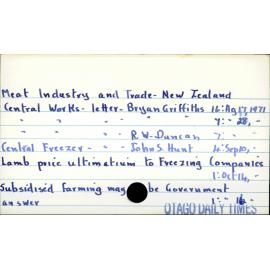 Meat Industry and Trade - New Zealand
Central Works - letter - Bryan Griffiths 14: Ag 17, 1971
" " " " " 7: - 28, -
" " " R. W. Duncan 7: "
Central Freezer - " - John S. Hunt 4: Sep 10, -
Lamb price ultimatium to Freezing Companies
1: Oct 14, -
Subsidised farming may be Government
answer 1: - 16 -
OTAGO DAILY TIMES